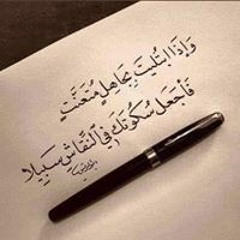 وَإِذَا ابْتُلِيتَ بِجَاهِلٍ مُتَعَنِّتٍ
فَاجْعَلْ سُكُوتَكَ فِي النِّقَاشِ سَبِيلًا